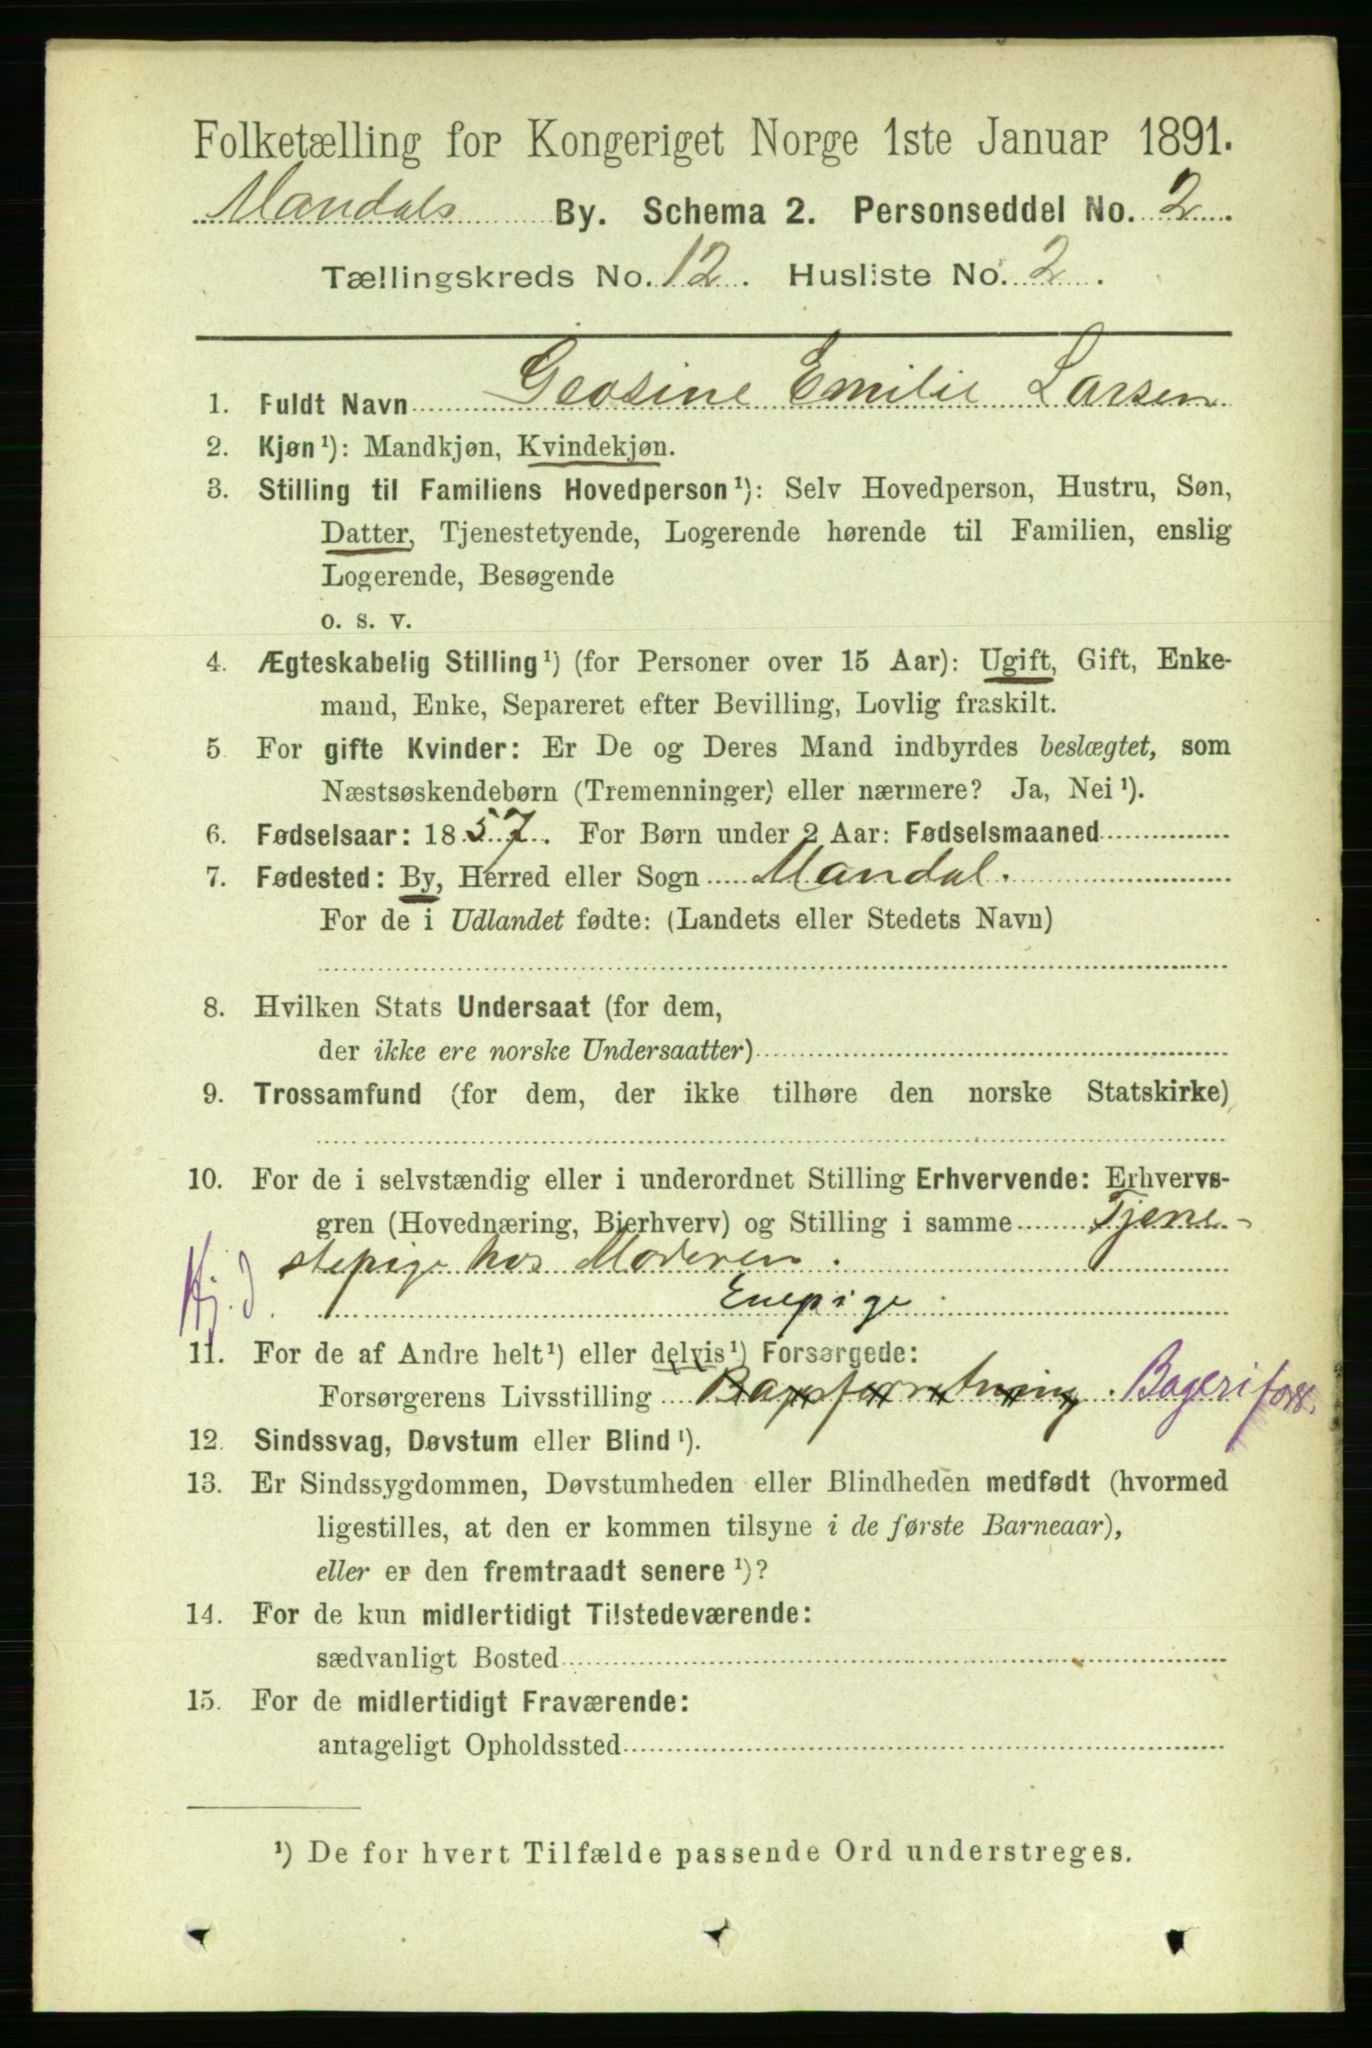 Folketælling for Kongeriget Norge 1ste Januar 1891.
Mandals By. Schema 2. Personseddel No. 2.
Tællingskreds No. 12. Husliste No. 2.
1. Fuldt Navn Geosine Emilie Larsen
2. Kjøn¹): Mandkjøn, Kvindekjøn.
3. Stilling til Familiens Hovedperson¹): Selv Hovedperson, Hustru, Søn,
Datter, Tjenestetyende, Logerende hørende til Familien, enslig
Logerende, Besøgende
o. s. v.
4. Ægteskabelig Stilling¹) (for Personer over 15 Aar): Ugift, Gift, Enke-
mand, Enke, Separeret efter Bevilling, Lovlig fraskilt.
5. For gifte Kvinder: Er De og Deres Mand indbyrdes beslægtet, som
Næstsøskendebørn (Tremenninger) eller nærmere? Ja, Nei¹).
6. Fødselsaar: 1857. For Børn under 2 Aar: Fødselsmaaned
7. Fødested: By, Herred eller Sogn Mandal.
For de i Udlandet fødte: (Landets eller Stedets Navn)
8. Hvilken Stats Undersaat (for dem,
der ikke ere norske Undersaatter)
9. Trossamfund (for dem, der ikke tilhøre den norske Statskirke)
10. For de i selvstændig eller i underordnet Stilling Erhvervende: Erhvervs-
gren (Hovednæring, Bierhverv) og Stilling i samme Tjene-
stepige hos Moderen.
Hj. d. Enepige.
11. For de af Andre helt¹) eller delvis¹) Forsørgede:
Forsørgerens Livsstilling Bagerforretning. Bageriforr.
12. Sindssvag, Døvstum eller Blind¹).
13. Er Sindssygdommen, Døvstumheden eller Blindheden medfødt (hvormed
ligestilles, at den er kommen tilsyne i de første Barneaar),
eller er den fremtraadt senere¹)?
14. For de kun midlertidigt Tilstedeværende:
sædvanligt Bosted
15. For de midlertidigt Fraværende:
antageligt Opholdssted
¹) De for hvert Tilfælde passende Ord understreges.